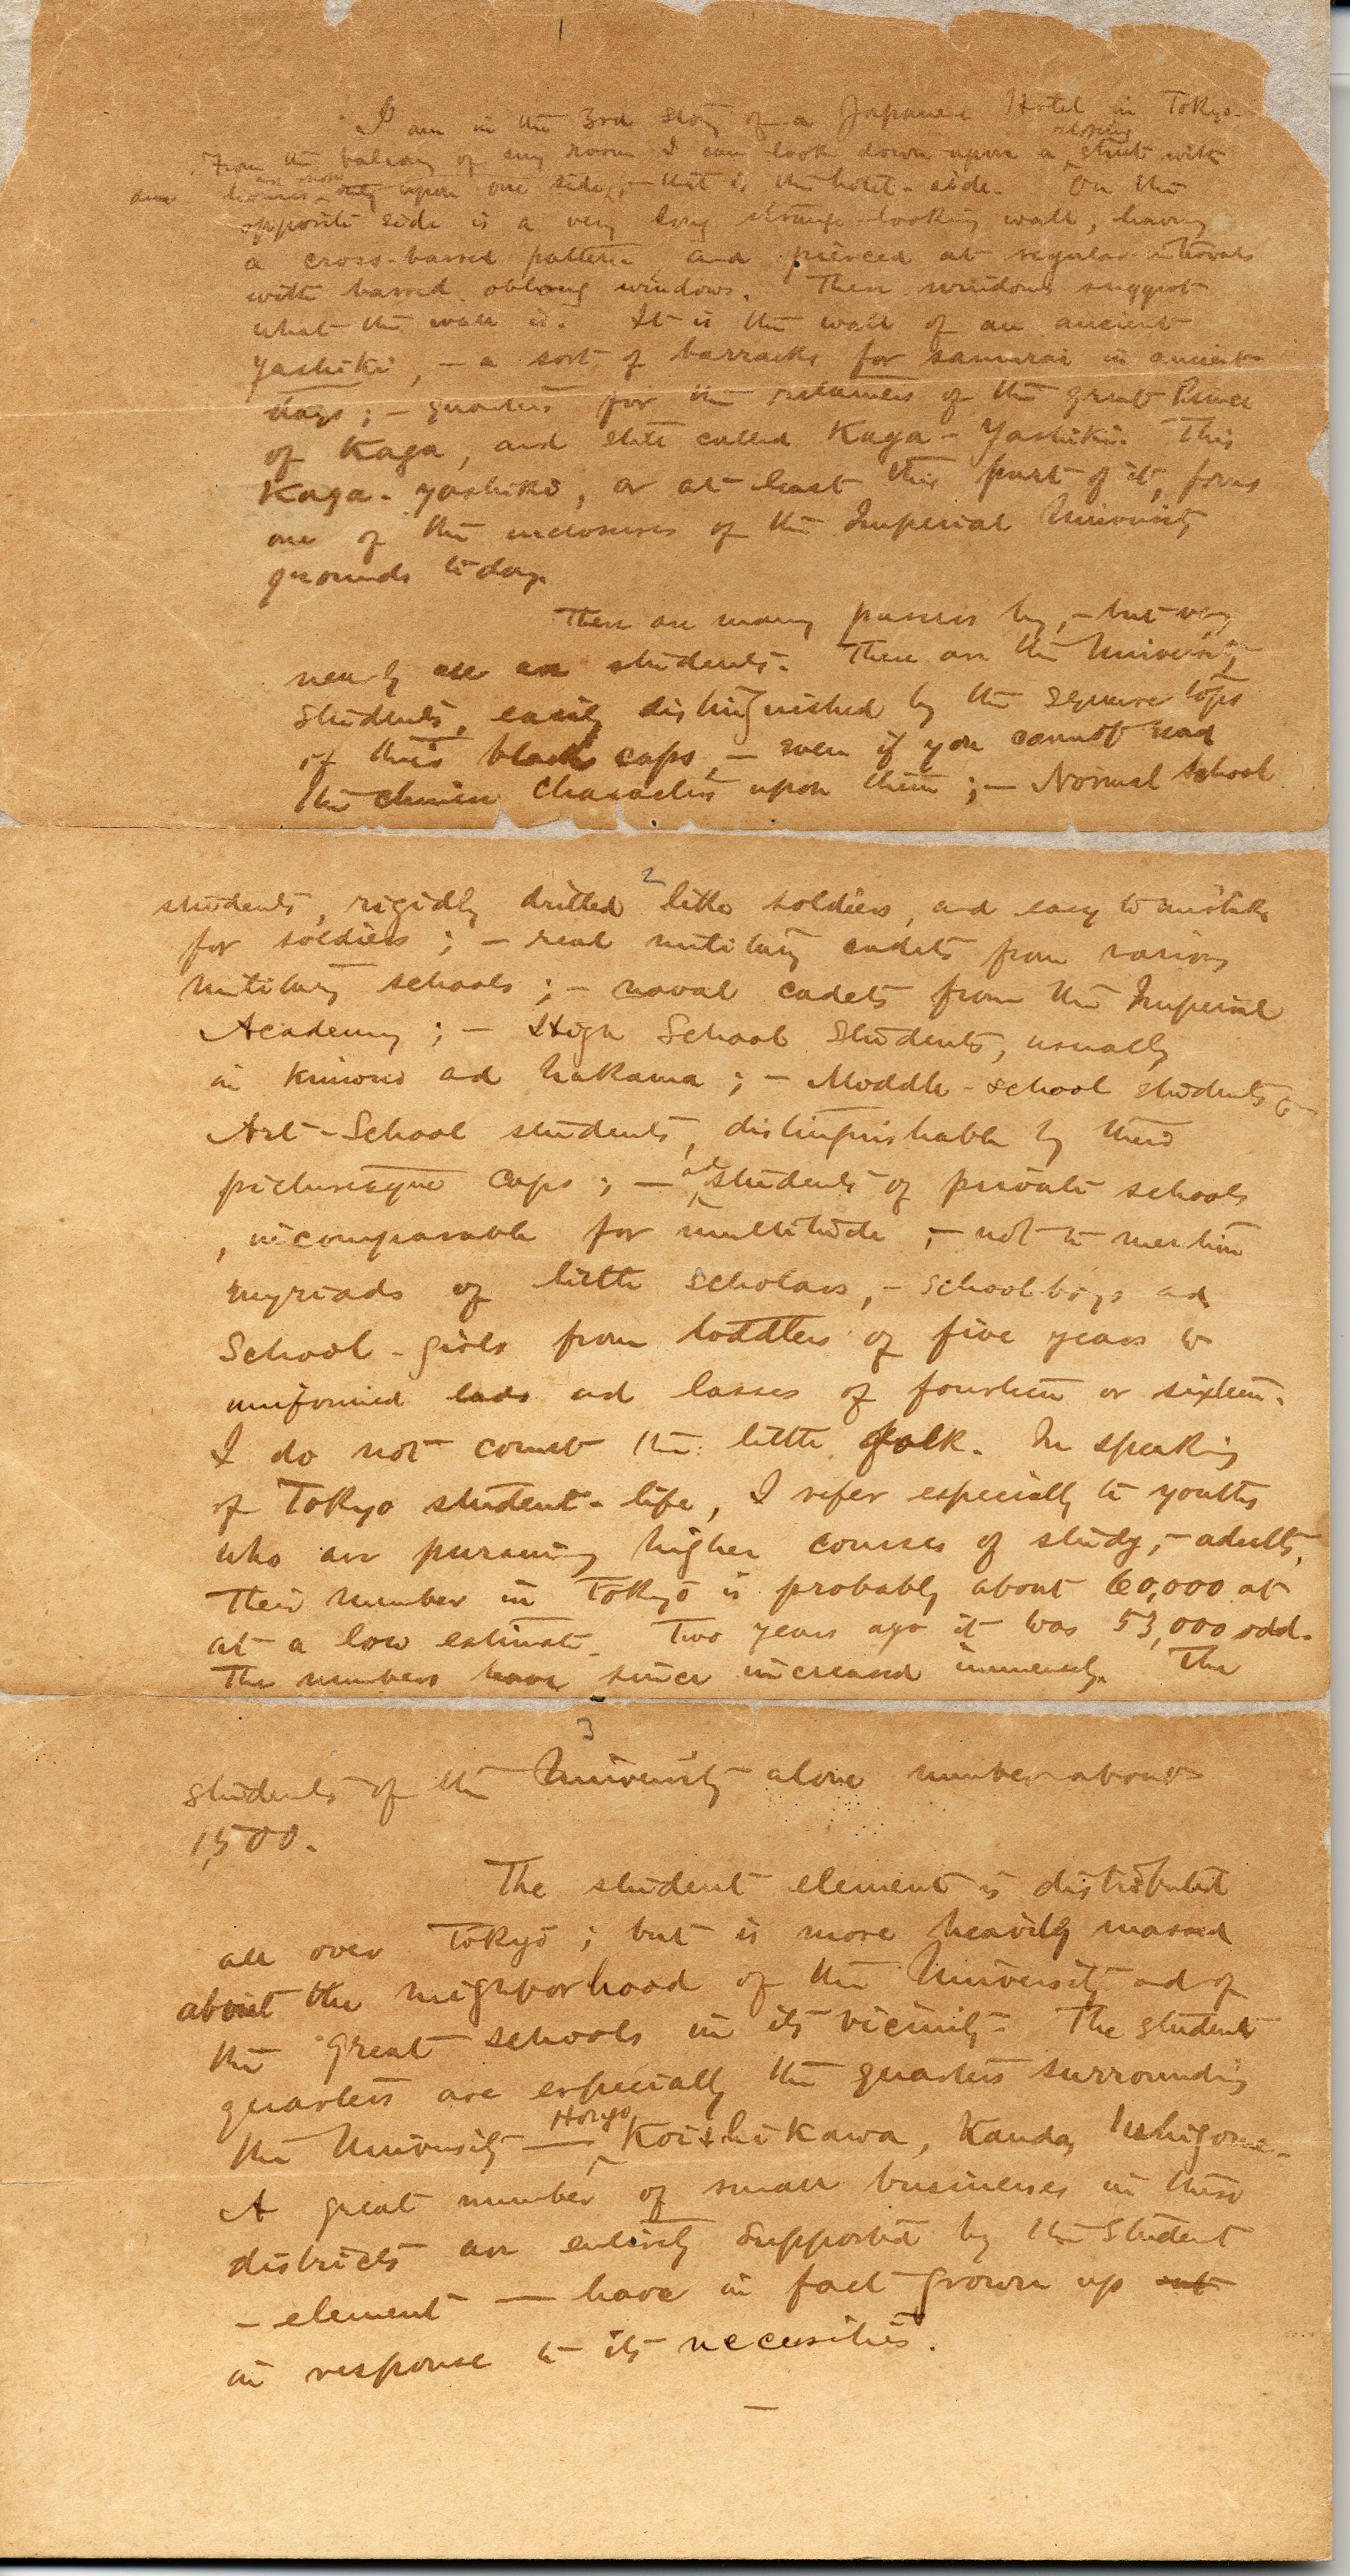 1
I am in the 3rd story of a Japanese Hotel in Tokyo.
sloping
From the balcony of my room I can look down upon a street with
houses only upon one side, – that is the hotel-side. On the
opposite side is a very long strange-looking wall, having
a cross-barred pattern, and pierced at regular intervals
with barred oblong windows. These windows suggest
what the wall is. It is the wall of an ancient
Yashiki, – a sort of barracks for samurai in ancient
days; – quarters for the retainers of the great Prince
of Kaga, and still called Kaga-Yashiki. This
Kaga-yashiki, or at least this part of it, forms
one of the inclosures of the Imperial University
grounds to day.
There are many passers by, – but very
nearly all are students. There are the University
students, easily distinguished by the square tops
of their black caps, – even if you cannot read
the chinese characters upon them; – Normal School
2
students, rigidly drilled little soldiers, and easy to mistake
for soldiers; – real military cadets from various
military schools; – naval cadets from the Imperial
Academy; – High School Students, usually
in kimono and hakama; – Middle-school students
Art-School students, distinguishable by their
picturesque caps; – and students of private schools
, incomparable for multitude, – not to mention
myriads of little scholars, – school-boys and
School-girls from toddlers of five years to
uniformed lads and lasses of fourteen or sixteen.
I do not count the little folk. In speaking
of Tokyo student-life, I refer especially to youths
who are pursuing higher courses of study, – adults,
Their number in Tokyo is probably about 60,000 at
at a low estimate. Two years ago it was 53,000 odd.
The numbers have since increased immensely. The
3
students of the University alone number about
1,500.
The student element is distributed
all over Tokyo; but is more heavily massed
about the neighborhood of the University and of
the great schools in its vicinity. The student
quarters are especially the quarters surrounding
Hongo,
the University — Koishikawa, Kanda, Ushigome.
A great number of small businesses in these
districts are entirely supported by the student
-element — have in fact grown up out
in response to its necessities.